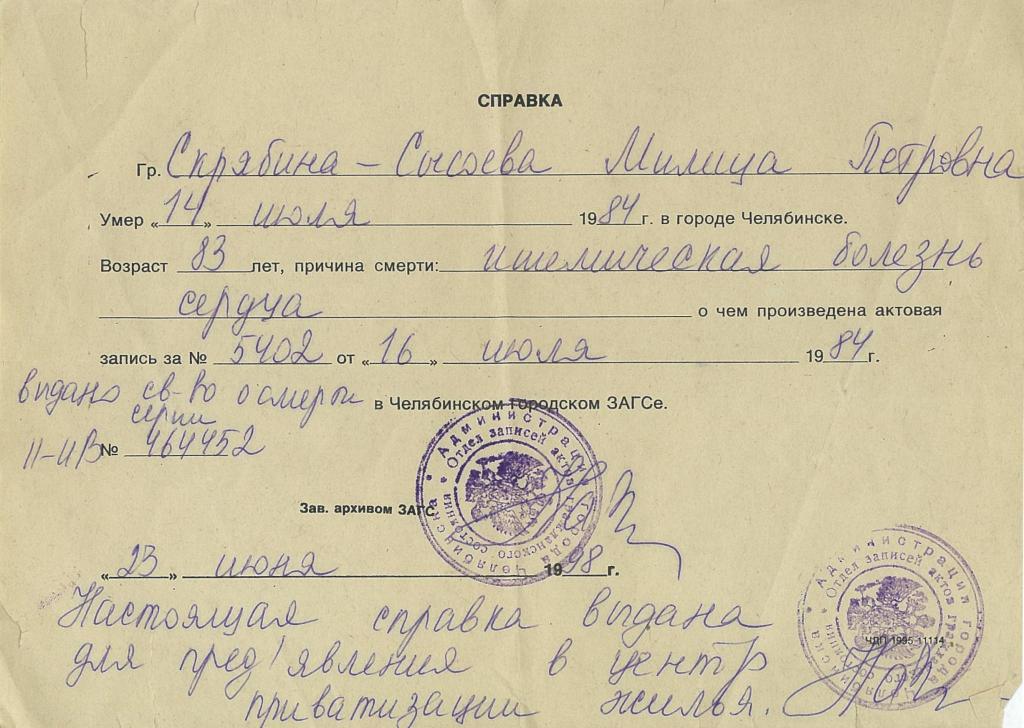 СПРАВКА
Гр. Скрябина – Сысоева Милица Петровна
Умер «14» июля 1984г. в городе Челябинске.
Возраст 83 лет, причина смерти: ишемическая болезнь
сердца о чем произведена актовая
запись за № 5402 от «16» июля 1984г.
выдано св-во о смерти в Челябинском городском ЗАГСе.
серии
II-ИВ № 464452
Администрация города Челябинска
Отдел записей актов гражданского состояния
Зав. архивом ЗАГС
«23» июня 1998 г.
Настоящая справка выдана
для пред'явления в центр
приватизации жилья.
Администрация города Челябинска
Отдел записей актов гражданского состояния
ЧДП 1995 11114